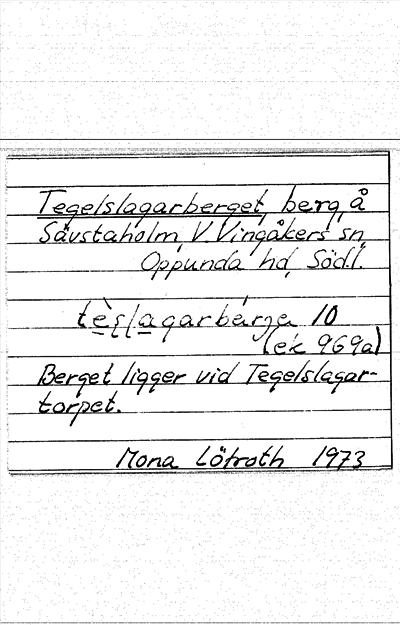 Tegelslagarberget, berg, å
Sävstaholm, V. Vingåkers sn,
Oppunda hd, Södl.
10
(ek 9G9a)
Berget ligger vid Tegelslagar-
torpet.
Mona Löfroth 1973